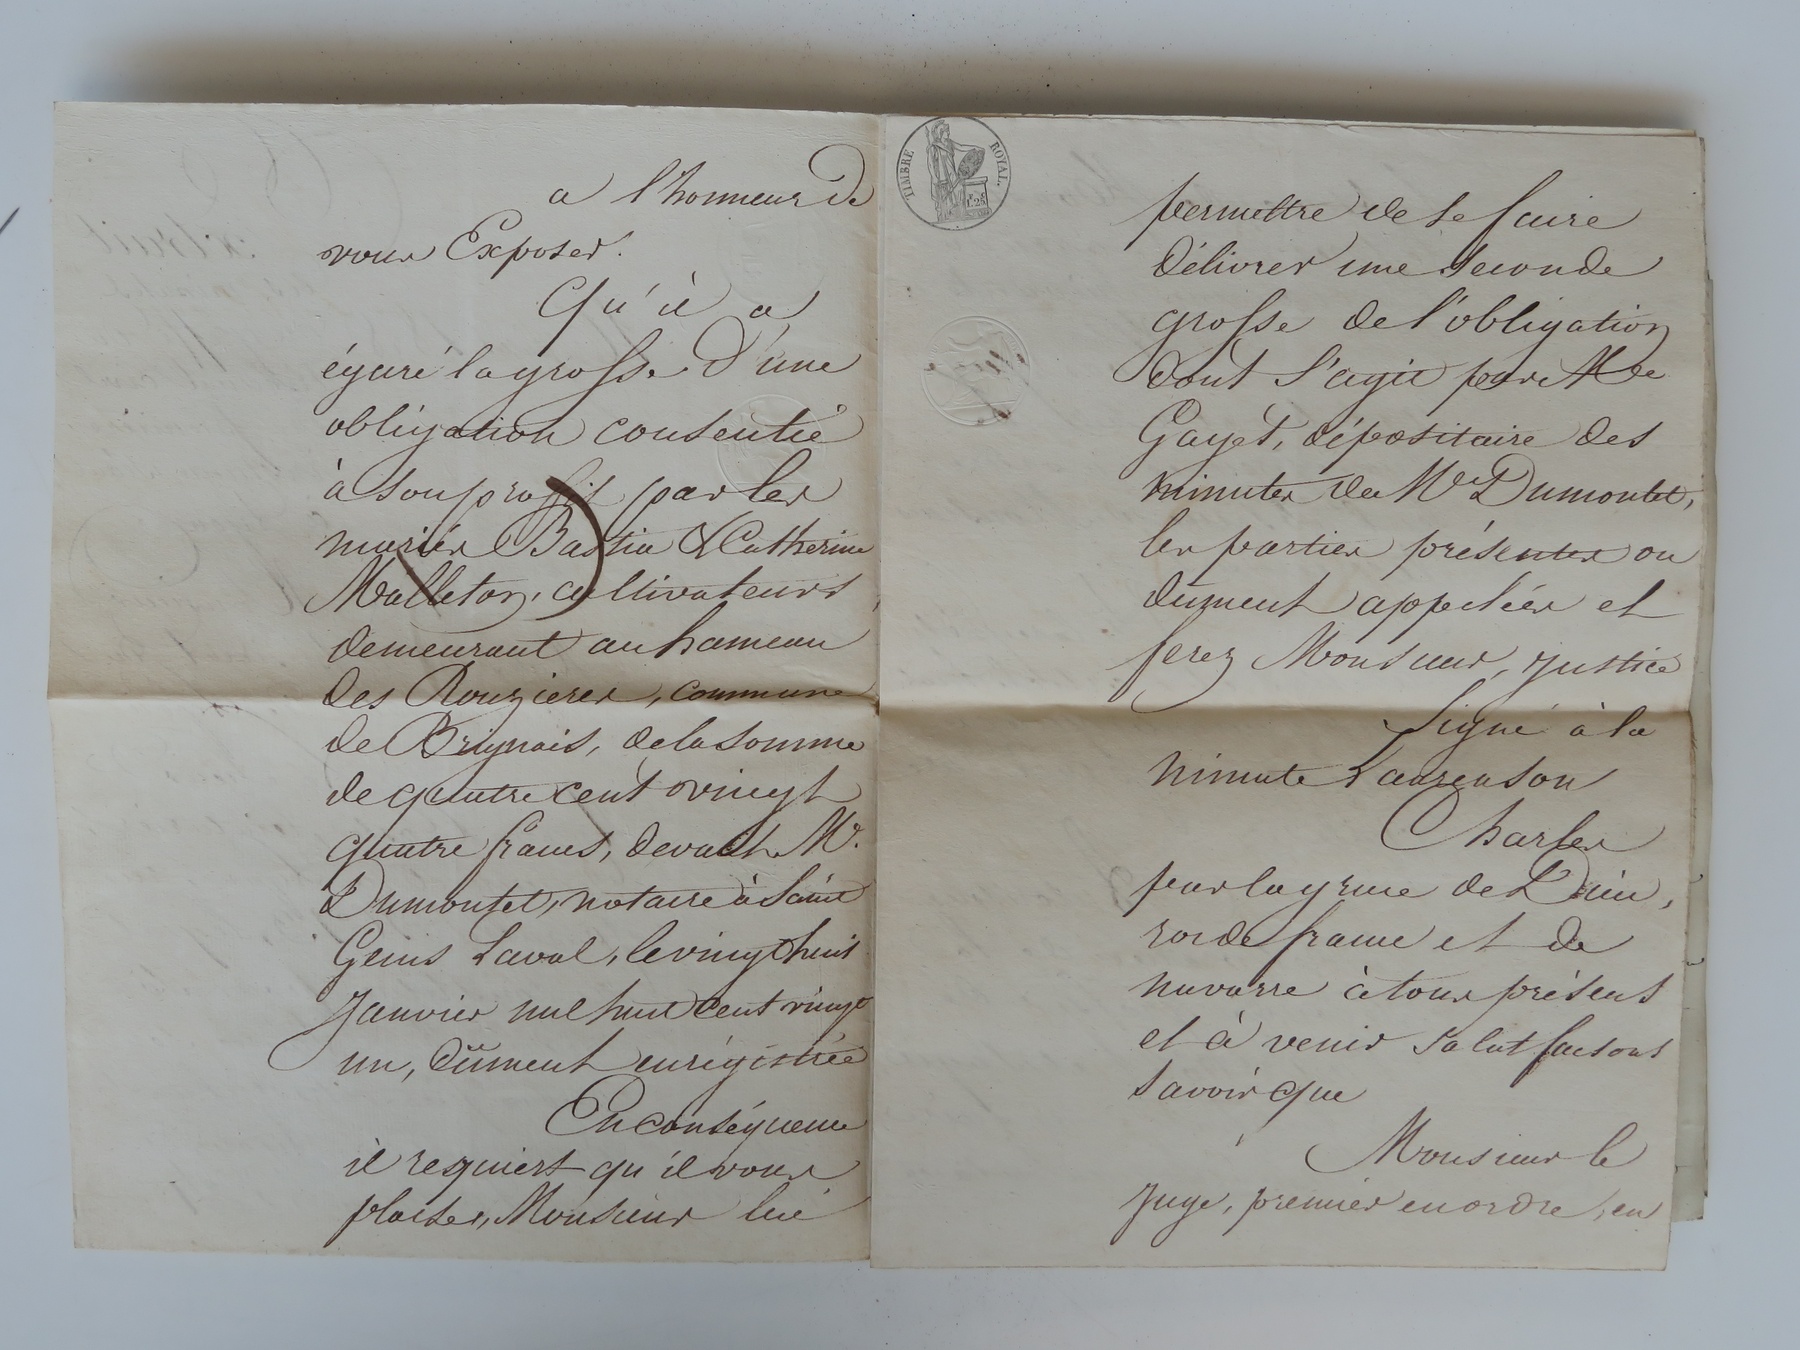 a l'honneur de
vous Exposer.
Qu'il a
égaré la grosse d'une
obligation consentie
à son profit par les
mariés Bastia & Catherine
Malleton, cultivateurs,
demeurant au hameau
des Rouzieres, commune
de Brignais, de la somme
de quatre cent vingt
quatre francs, devant Me.
Dumontet, notaire à Saint
Genis Laval, le vingt huit
Janvier mil huit cent vingt
un, dûment enrégistrée
En conséquence
il requiert qu'il vous
plaise, Monsieur lui
TIMBRE ROYAL.
1.25
permettre de se faire
délivrer une seconde
grosse de l'obligation
dont s'agit par Me
Gayet, dépositaire des
minutes de Me Dumontet,
les parties présentes ou
dument appelées et
ferez Monsieur, justice
Signé à la
minute Laurenson
Charles
par la grace de Dieu,
roi de france et de
navarre à tous présents
et à venir salut faisons
savoir que
Monsieur le
Juge, premier en ordre, en